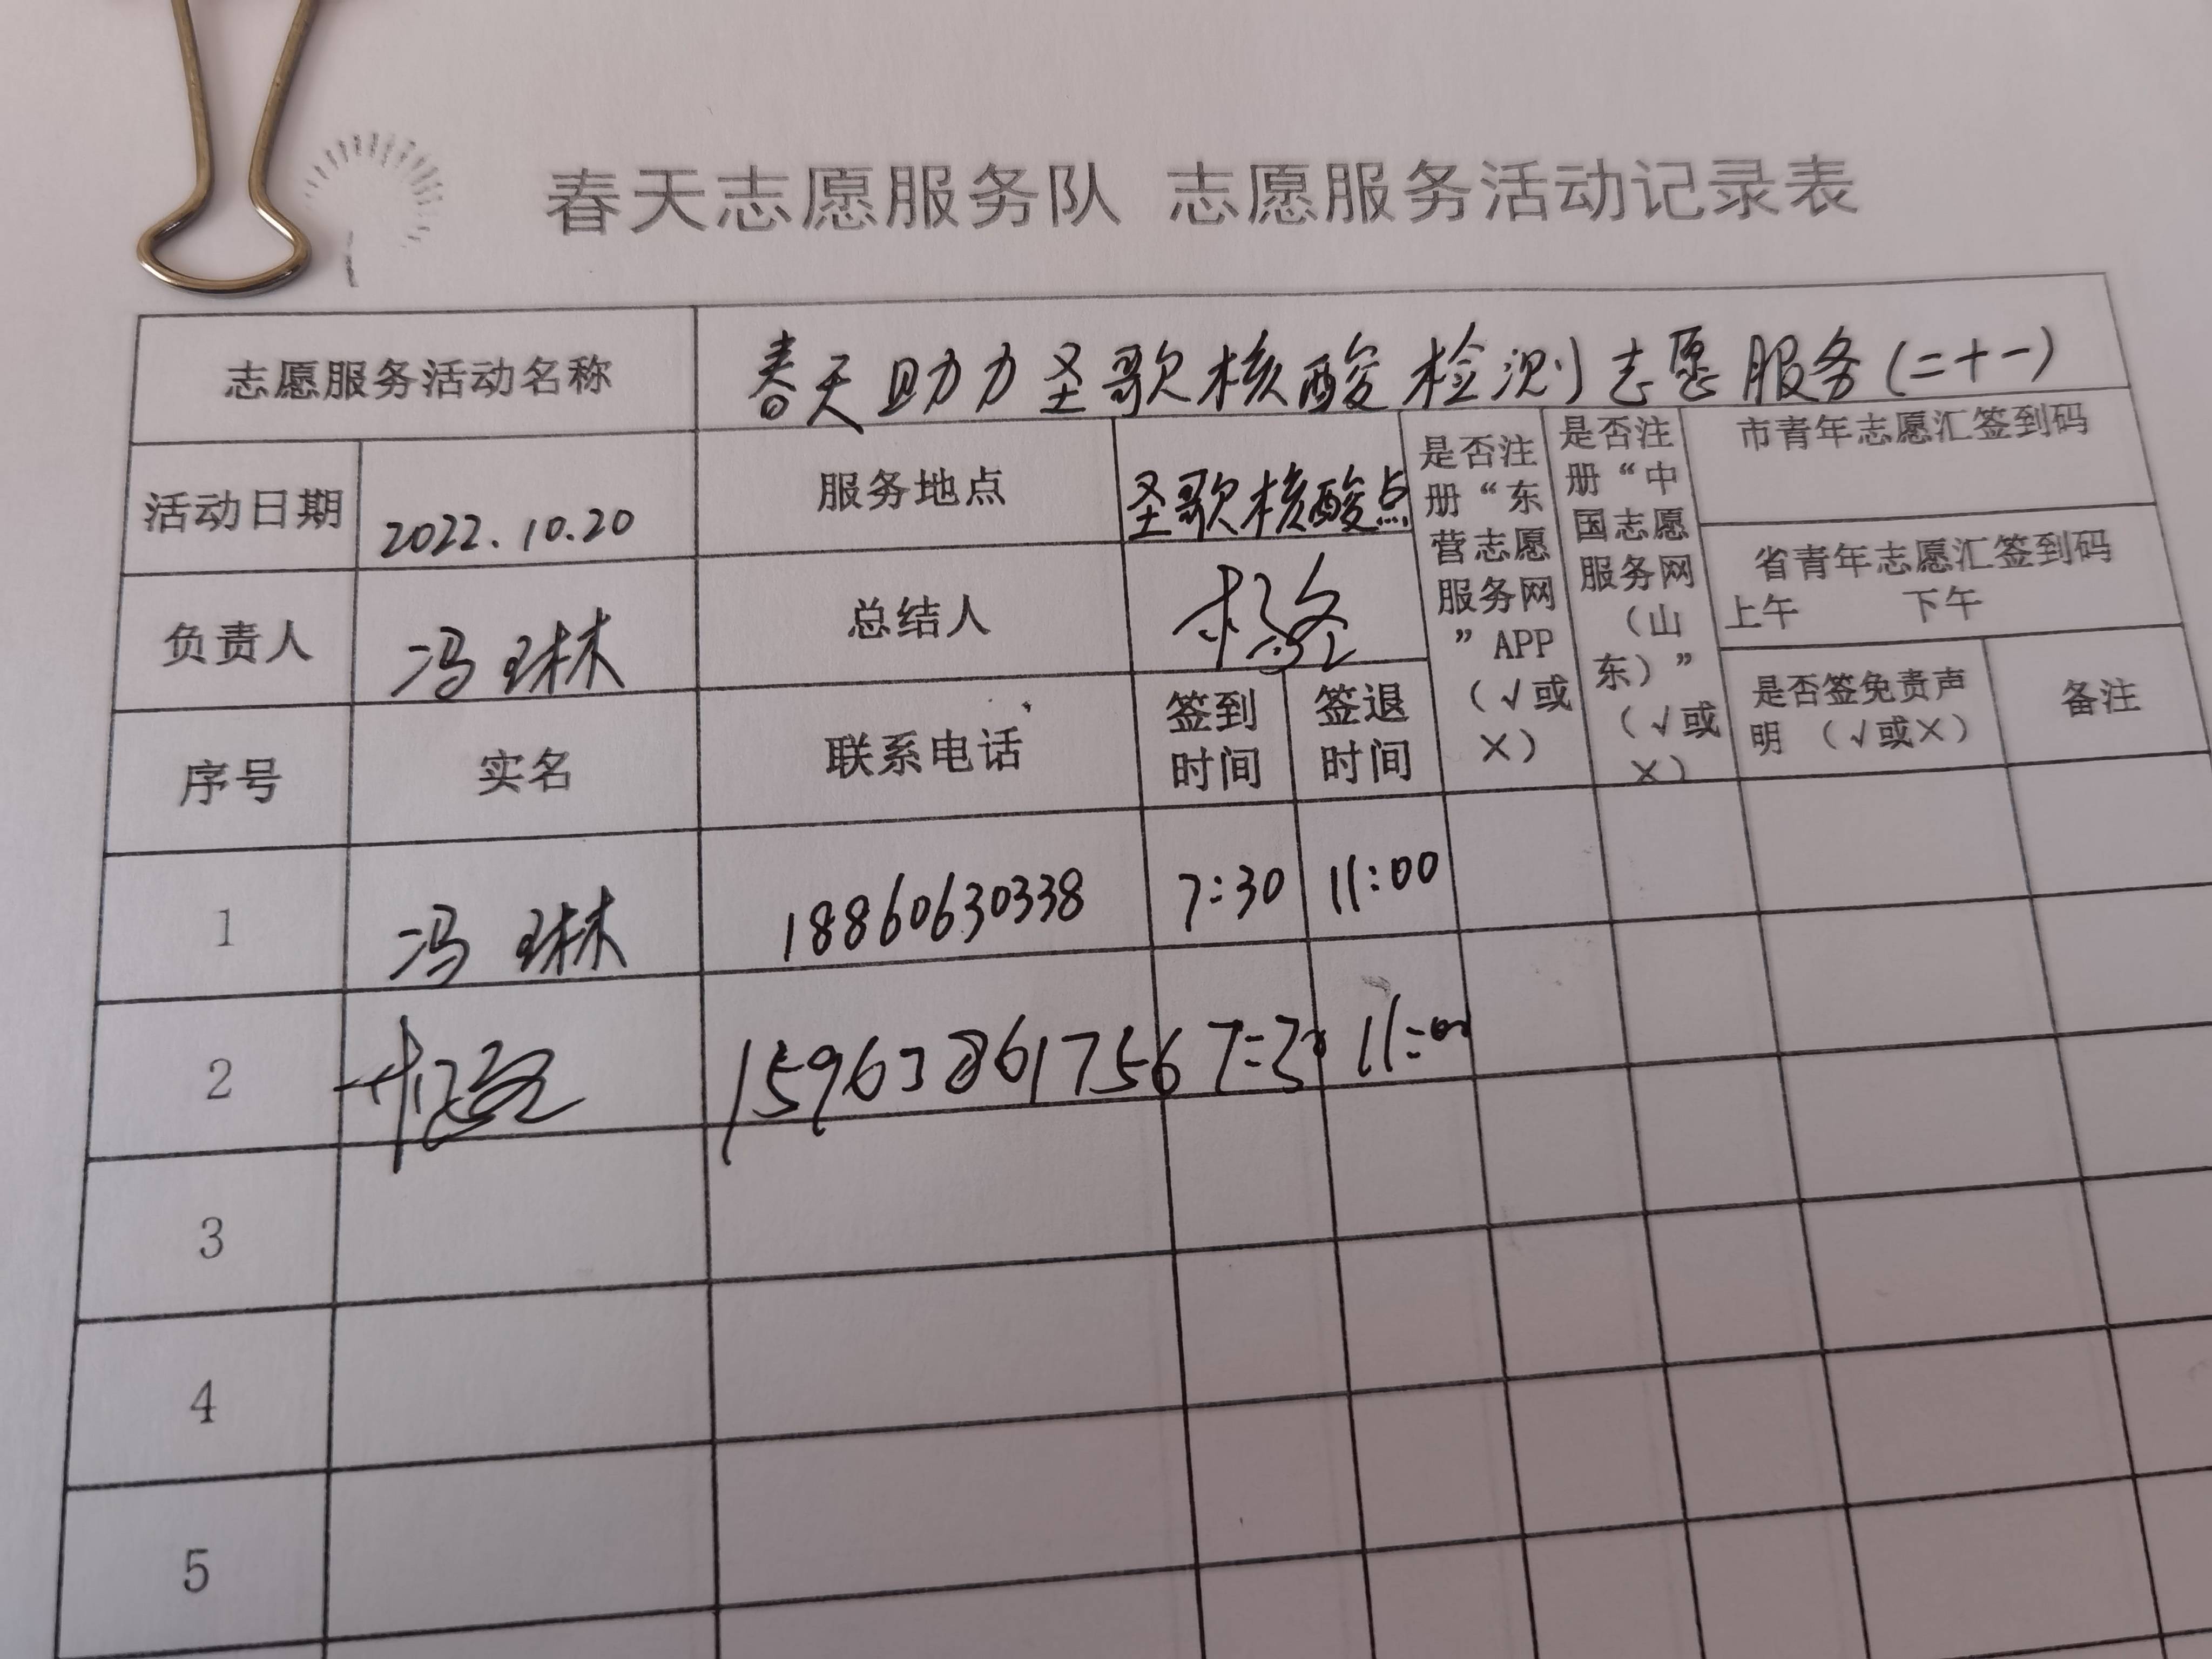 春天志愿服务队 志愿服务活动记录表
志愿服务活动名称 春天助力圣歌核酸检测志愿服务(二十一)
活动日期 2022.10.20 服务地点 圣歌核酸点
是否注册“东营志愿服务网”APP（√或×）
是否注册“中国志愿服务网（山东）”（√或×）
市青年志愿汇签到码
省青年志愿汇签到码
上午 下午
负责人 冯琳 总结人
是否签免责声明（√或×） 备注
序号 实名 联系电话 签到时间 签退时间
1 冯琳 18860630338 7:30 11:00
2 7:30 11:00
3
4
5